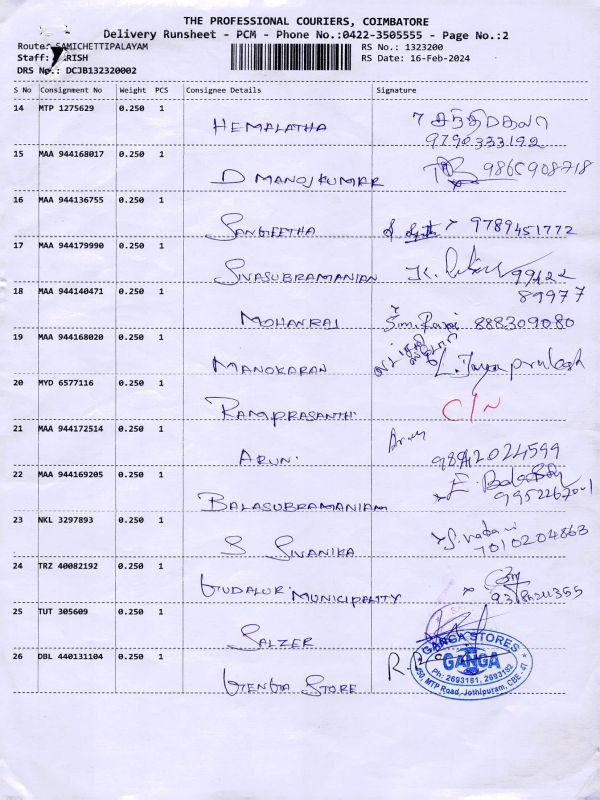 THE PROFESSIONAL COURIERS, COIMBATORE
Delivery Runsheet - PCM - Phone No.:0422-3505555 - Page No.:2
Route: SAMICHETTIPALAYAM RS No.: 1323200
Staff: RISH RS Date: 16-Feb-2024
DRS No.: DCJB132320002
S No Consignment No Weight PCS Consignee Details Signature
14 MTP 1275629 0.250 1 HEMALATHA 9790333192
15 MAA 944168017 0.250 1 D MANOJKUMAR
16 MAA 944136755 0.250 1 SANGEETHA 9789451772
17 MAA 944179990 0.250 1 SIVASUBRAMANIAN K. 99422
89977
18 MAA 944140471 0.250 1 MOHANRAJ 888309080
19 MAA 944168020 0.250 1 MANOKARAN L. Jayaprakash
20 MYD 6577116 0.250 1 RAMPRASANTH C/N
21 MAA 944172514 0.250 1 ARUN
22 MAA 944169205 0.250 1 BALASUBRAMANIAM
23 NKL 3297893 0.250 1 S SIVANIKA 7010204863
24 TRZ 40082192 0.250 1 GUDALUR MUNICIPALITY
25 TUT 305609 0.250 1 SALZER
26 DBL 440131104 0.250 1 GENGA STORE
GANGA STORES
GANGA
Ph: 2693181, 2693182
MTP Road, Jothipuram, CBE-47